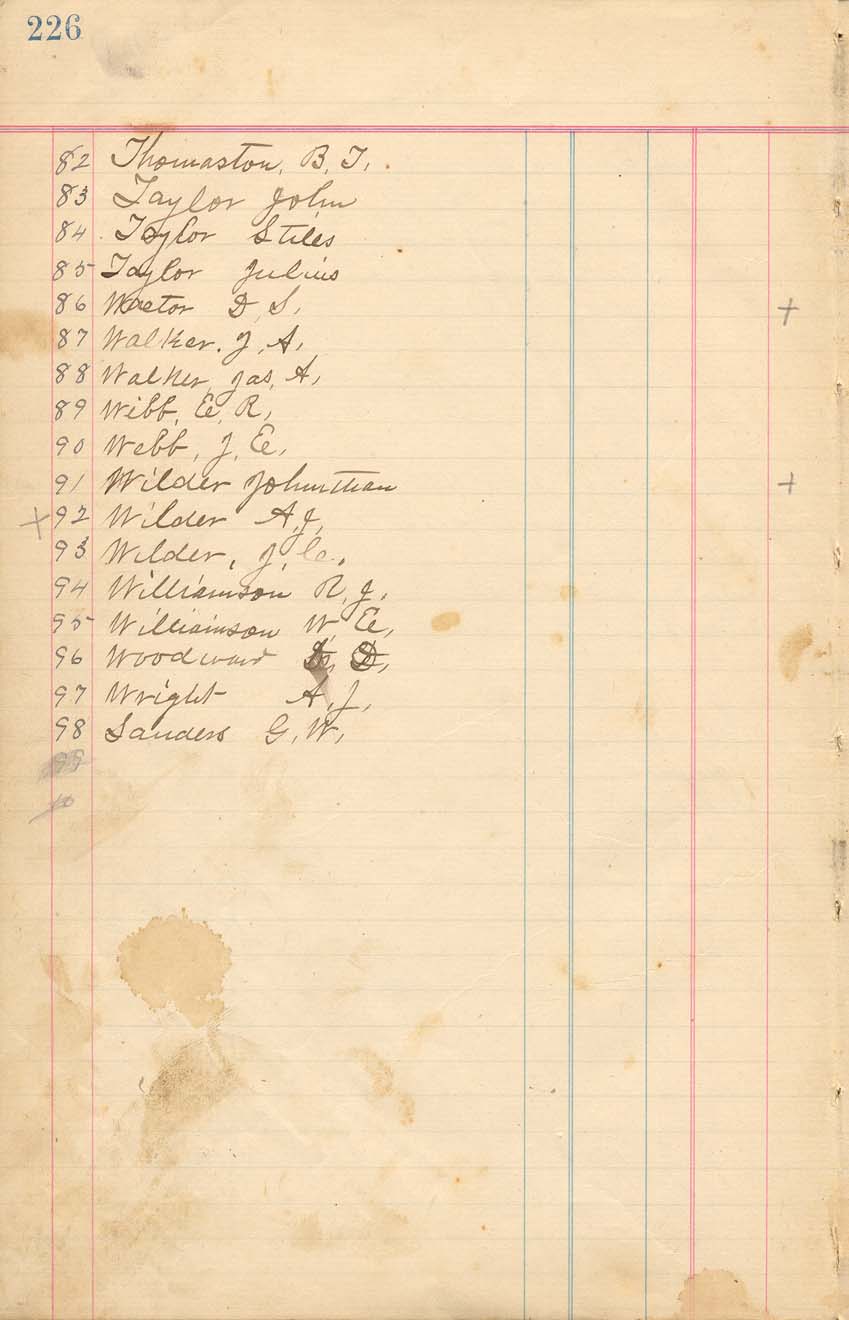 226
82 Thomaston, B. T.
83 Taylor John
84 Taylor Stiles
85 Taylor Julius
86 D, S, +
87 Walker. J, A,
88 Walker, Jas, A,
89 Wibb, E, R,
90 Webb, J, E,
91 Wilder Johnthan +
+92 Wilder A, J,
93 Wilder, J,
94 Williamson R, J,
95 Williamson W, E,
96 Woodward D,
97 Wright A, J,
98 Sanders G, W,
99